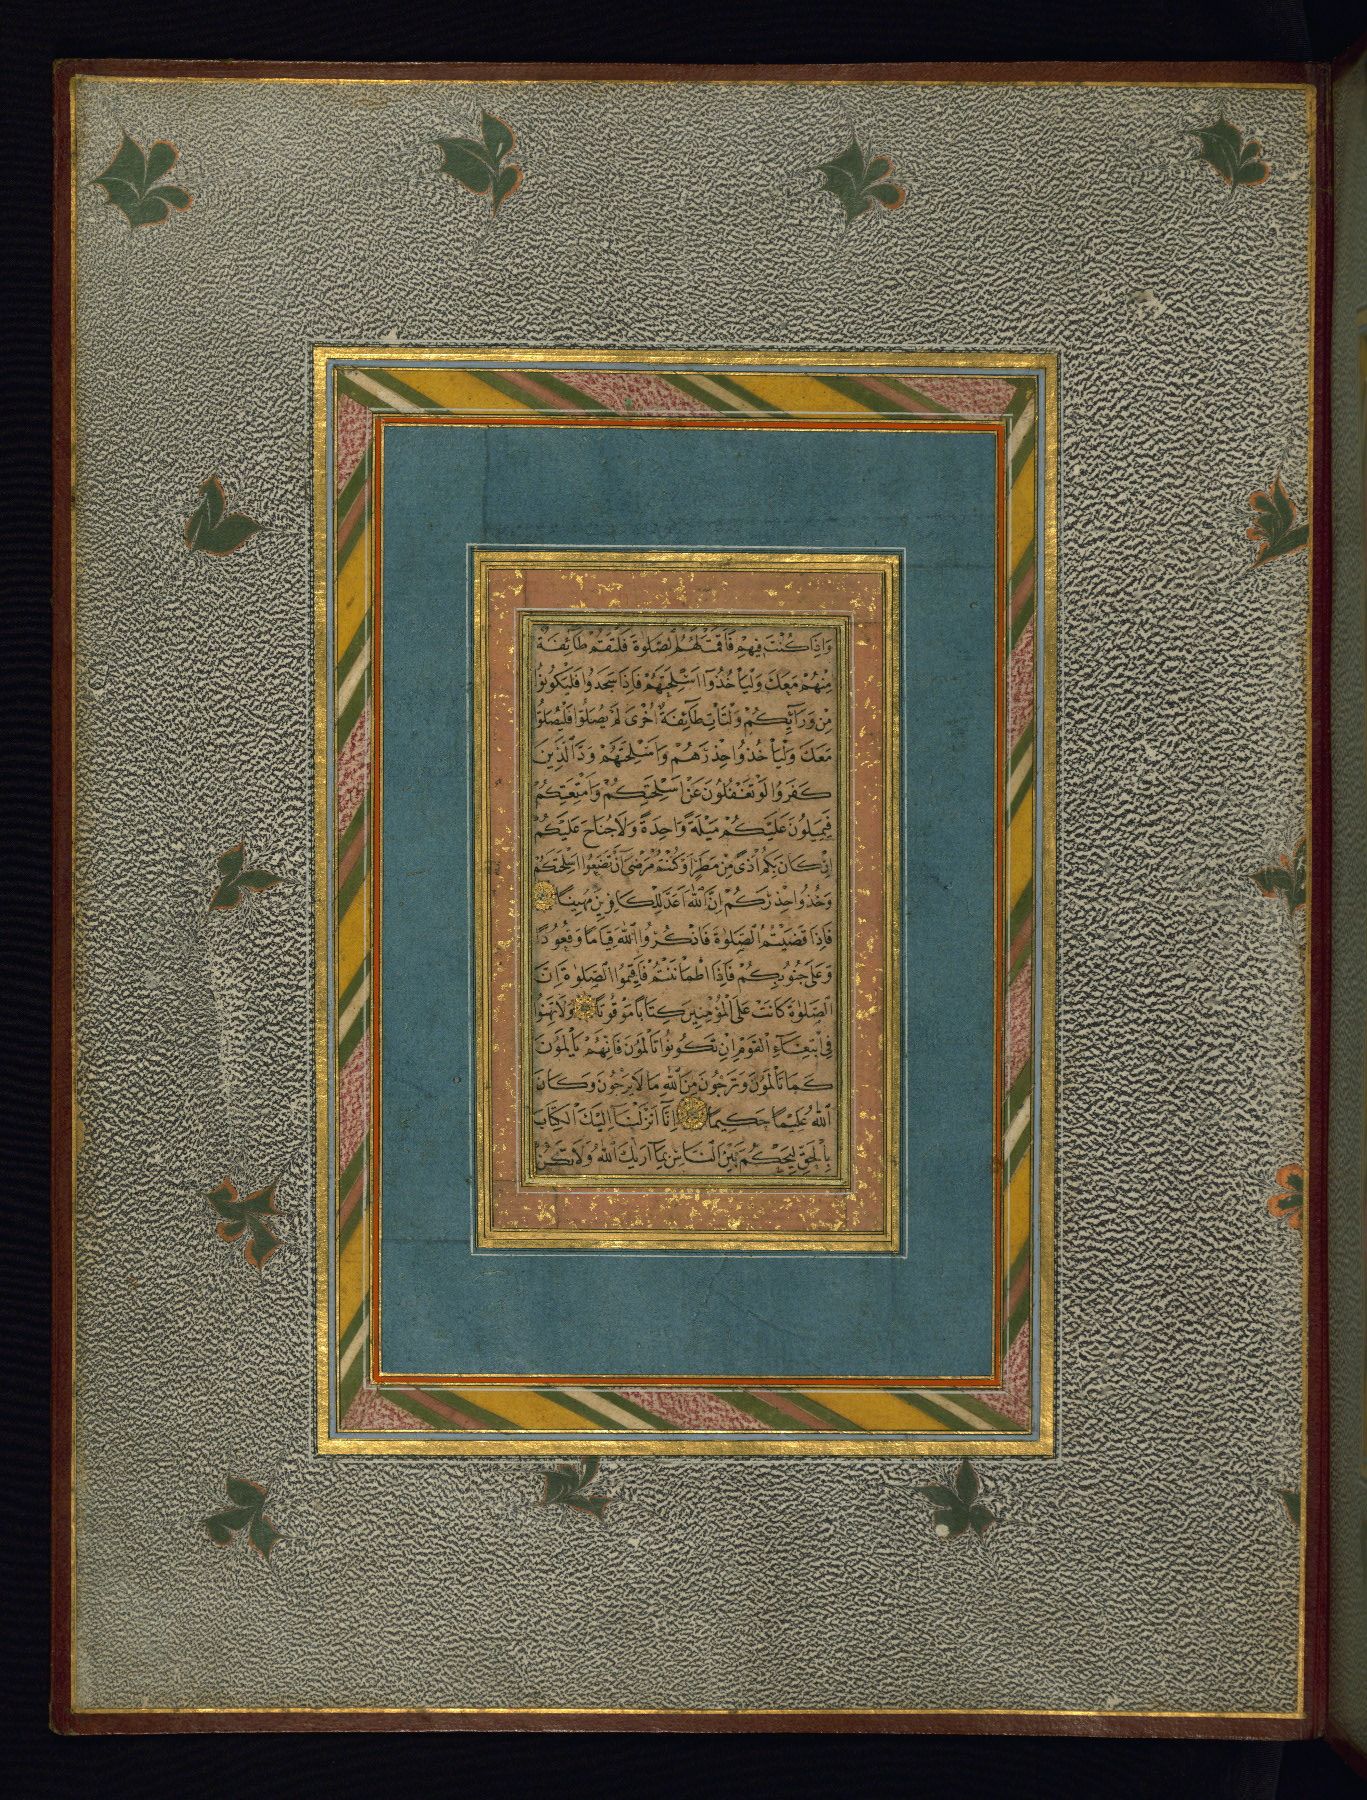 وَاِذَا كُنْتَ فِيهِمْ فَاَقَمْتَ لَهُمُ الصَّلٰوةَ فَلْتَقُمْ طَآئِفَةٌ
مِنْهُمْ مَعَكَ وَلْيَأْخُذُوٓا اَسْلِحَتَهُمْ فَاِذَا سَجَدُوا فَلْيَكُونُوا
مِنْ وَرَآئِكُمْ وَلْتَأْتِ طَآئِفَةٌ اُخْرٰى لَمْ يُصَلُّوا فَلْيُصَلُّوا
مَعَكَ وَلْيَأْخُذُوا حِذْرَهُمْ وَاَسْلِحَتَهُمْ وَدَّ الَّذِينَ
كَفَرُوا لَوْ تَغْفُلُونَ عَنْ اَسْلِحَتِكُمْ وَاَمْتِعَتِكُمْ
فَيَمِيلُونَ عَلَيْكُمْ مَيْلَةً وَاحِدَةً وَلَا جُنَاحَ عَلَيْكُمْ
اِنْ كَانَ بِكُمْ اَذًى مِنْ مَطَرٍ اَوْ كُنْتُمْ مَرْضٰٓى اَنْ تَضَعُوٓا اَسْلِحَتَكُمْ
وَخُذُوا حِذْرَكُمْ اِنَّ اللّٰهَ اَعَدَّ لِلْكَافِرِينَ عَذَابًا مُهِينًا
فَاِذَا قَضَيْتُمُ الصَّلٰوةَ فَاذْكُرُوا اللّٰهَ قِيَامًا وَقُعُودًا
وَعَلٰى جُنُوبِكُمْ فَاِذَا اطْمَاْنَنْتُمْ فَاَقِيمُوا الصَّلٰوةَ اِنَّ
الصَّلٰوةَ كَانَتْ عَلَى الْمُؤْمِنِينَ كِتَابًا مَوْقُوتًا وَلَا تَهِنُوا
فِى ابْتِغَآءِ الْقَوْمِ اِنْ تَكُونُوا تَأْلَمُونَ فَاِنَّهُمْ يَأْلَمُونَ
كَمَا تَأْلَمُونَ وَتَرْجُونَ مِنَ اللّٰهِ مَا لَا يَرْجُونَ وَكَانَ
اللّٰهُ عَلِيمًا حَكِيمًا اِنَّآ اَنْزَلْنَآ اِلَيْكَ الْكِتَابَ
بِالْحَقِّ لِتَحْكُمَ بَيْنَ النَّاسِ بِمَآ اَرٰيكَ اللّٰهُ وَلَا تَكُنْ